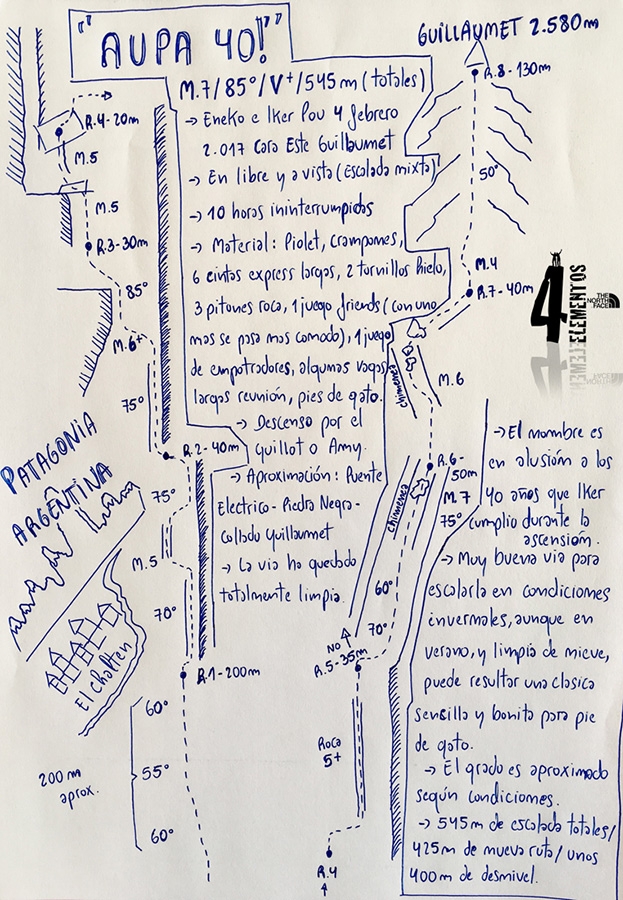 "AUPA 40!"
M.7/85º/V+/545m (totales)
→ Eneko e Iker Pou 4 febrero
2.017 Cara Este Guillaumet
→ En libre y a vista (Escalada mixta)
→ 10 horas ininterrumpidas
→ Material: Piolet, Crampones,
6 cintas express largas, 2 tornillos hielo,
3 pitones roca, 1 juego friends (con uno
mas se pasa mas comodo), 1 juego
de empotradores, algunas vagas
largas reunión, pies de gato.
→ Descenso por el
Guillot o Amy.
→ Aproximación: Puente
Electrico - Piedra Negra -
Collado Guillaumet
→ La via ha quedado
totalmente limpia.
GUILLAUMET 2.580m
R.8-130m
50º
M.4
R.7-40m
chimenea
M.6
R.6-
50m
M.7
75º
chimenea
60º
70º
NO
R.5-35m
Roca
5+
R.4
R.4-20m
M.5
M.5
R.3-30m
85º
M.6+
75º
R.2-40m
75º
M.5
70º
R.1-200m
60º
55º
60º
200 m
aprox.
PATAGONIA
ARGENTINA
El chalten
4
ELEMENTOS
THE
NORTH
FACE
→ El nombre es
en alusión a los
40 años que Iker
cumplio durante la
ascensión.
→ Muy buena via para
escalarla en condiciones
invernales, aunque en
verano, y limpia de nieve,
puede resultar una clasica
sencilla y bonita para pie
de gato.
→ El grado es aproximado
según condiciones.
→ 545m de escalada totales/
425m de nueva ruta/ unos
400m de desnivel.